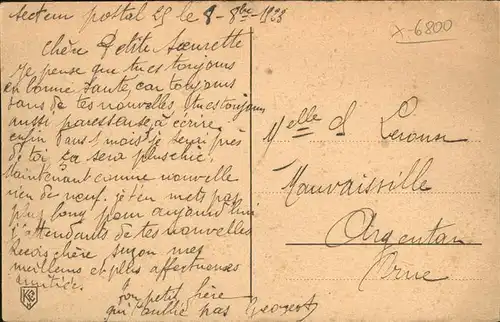 Secteur postal 25 le 8-8bre-1923
X-6800
Chère Petite Soeurette
Je pense que tu es toujours
en bonne santé, car toujours
sans de tes nouvelles, tu es toujours
aussi paresseuse, à écrire
enfin dans 1 mois je serai près
de toi, ça sera plus chic.
Maintenant comme nouvelle
rien de neuf. je t'en mets pas
plus long pour aujourd'hui
j'attendants de tes nouvelles
Reçois chère Suzon mes
meilleurs et plus affectueuses
amitiés.
Ton petit frère
qui t'oublie pas Georges
Melle S Leroux
Mauvaisville
Argentan
Orne